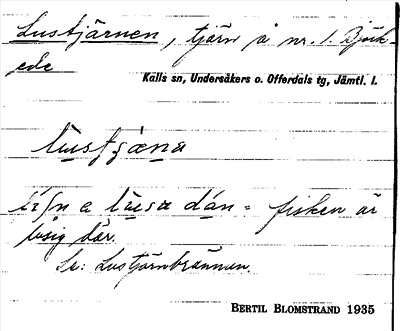 Lustjärnen, tjärn å nr. 1. Björk-
ede
Kalls sn, Undersåkers o. Offerdals tg, Jämtl. l.
lustjäna
a lusa dán = fisken är
lusig där.
Se: Lustjärnbrännan.
BERTIL BLOMSTRAND 1935